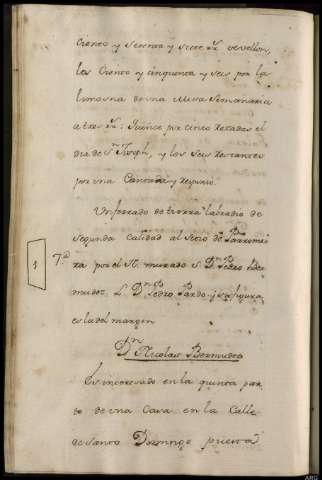 ciento y sesenta y siete rr.ˢ devellon,
los Ciento y cinquenta y seis por la
limosna de una Misa Semanaria
a tres rr.ˢ: Quince por cinco Rezados el
dia de Sⁿ Joseph, y los Seis restantes
por una Cantada y Responso.
Un ferrado de tierra labradio de
Segunda Calidad al Sitio de
por el N. murado S. Dⁿ Pedro Ber
mudez. L. Dⁿ Pedro Pardo y su figura
es la del margen
1
7.ª
Dⁿ Nicolas Bermudez
Es interesado en la quinta par
te de una Casa en la Calle
de Santo Domingo
ARG